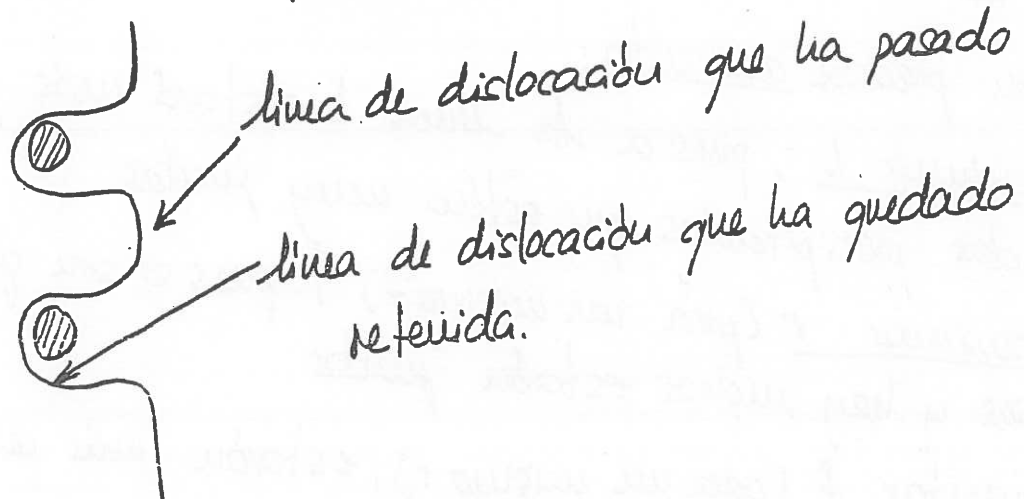 línea de dislocación que ha pasado
línea de dislocación que ha quedado
retenida.